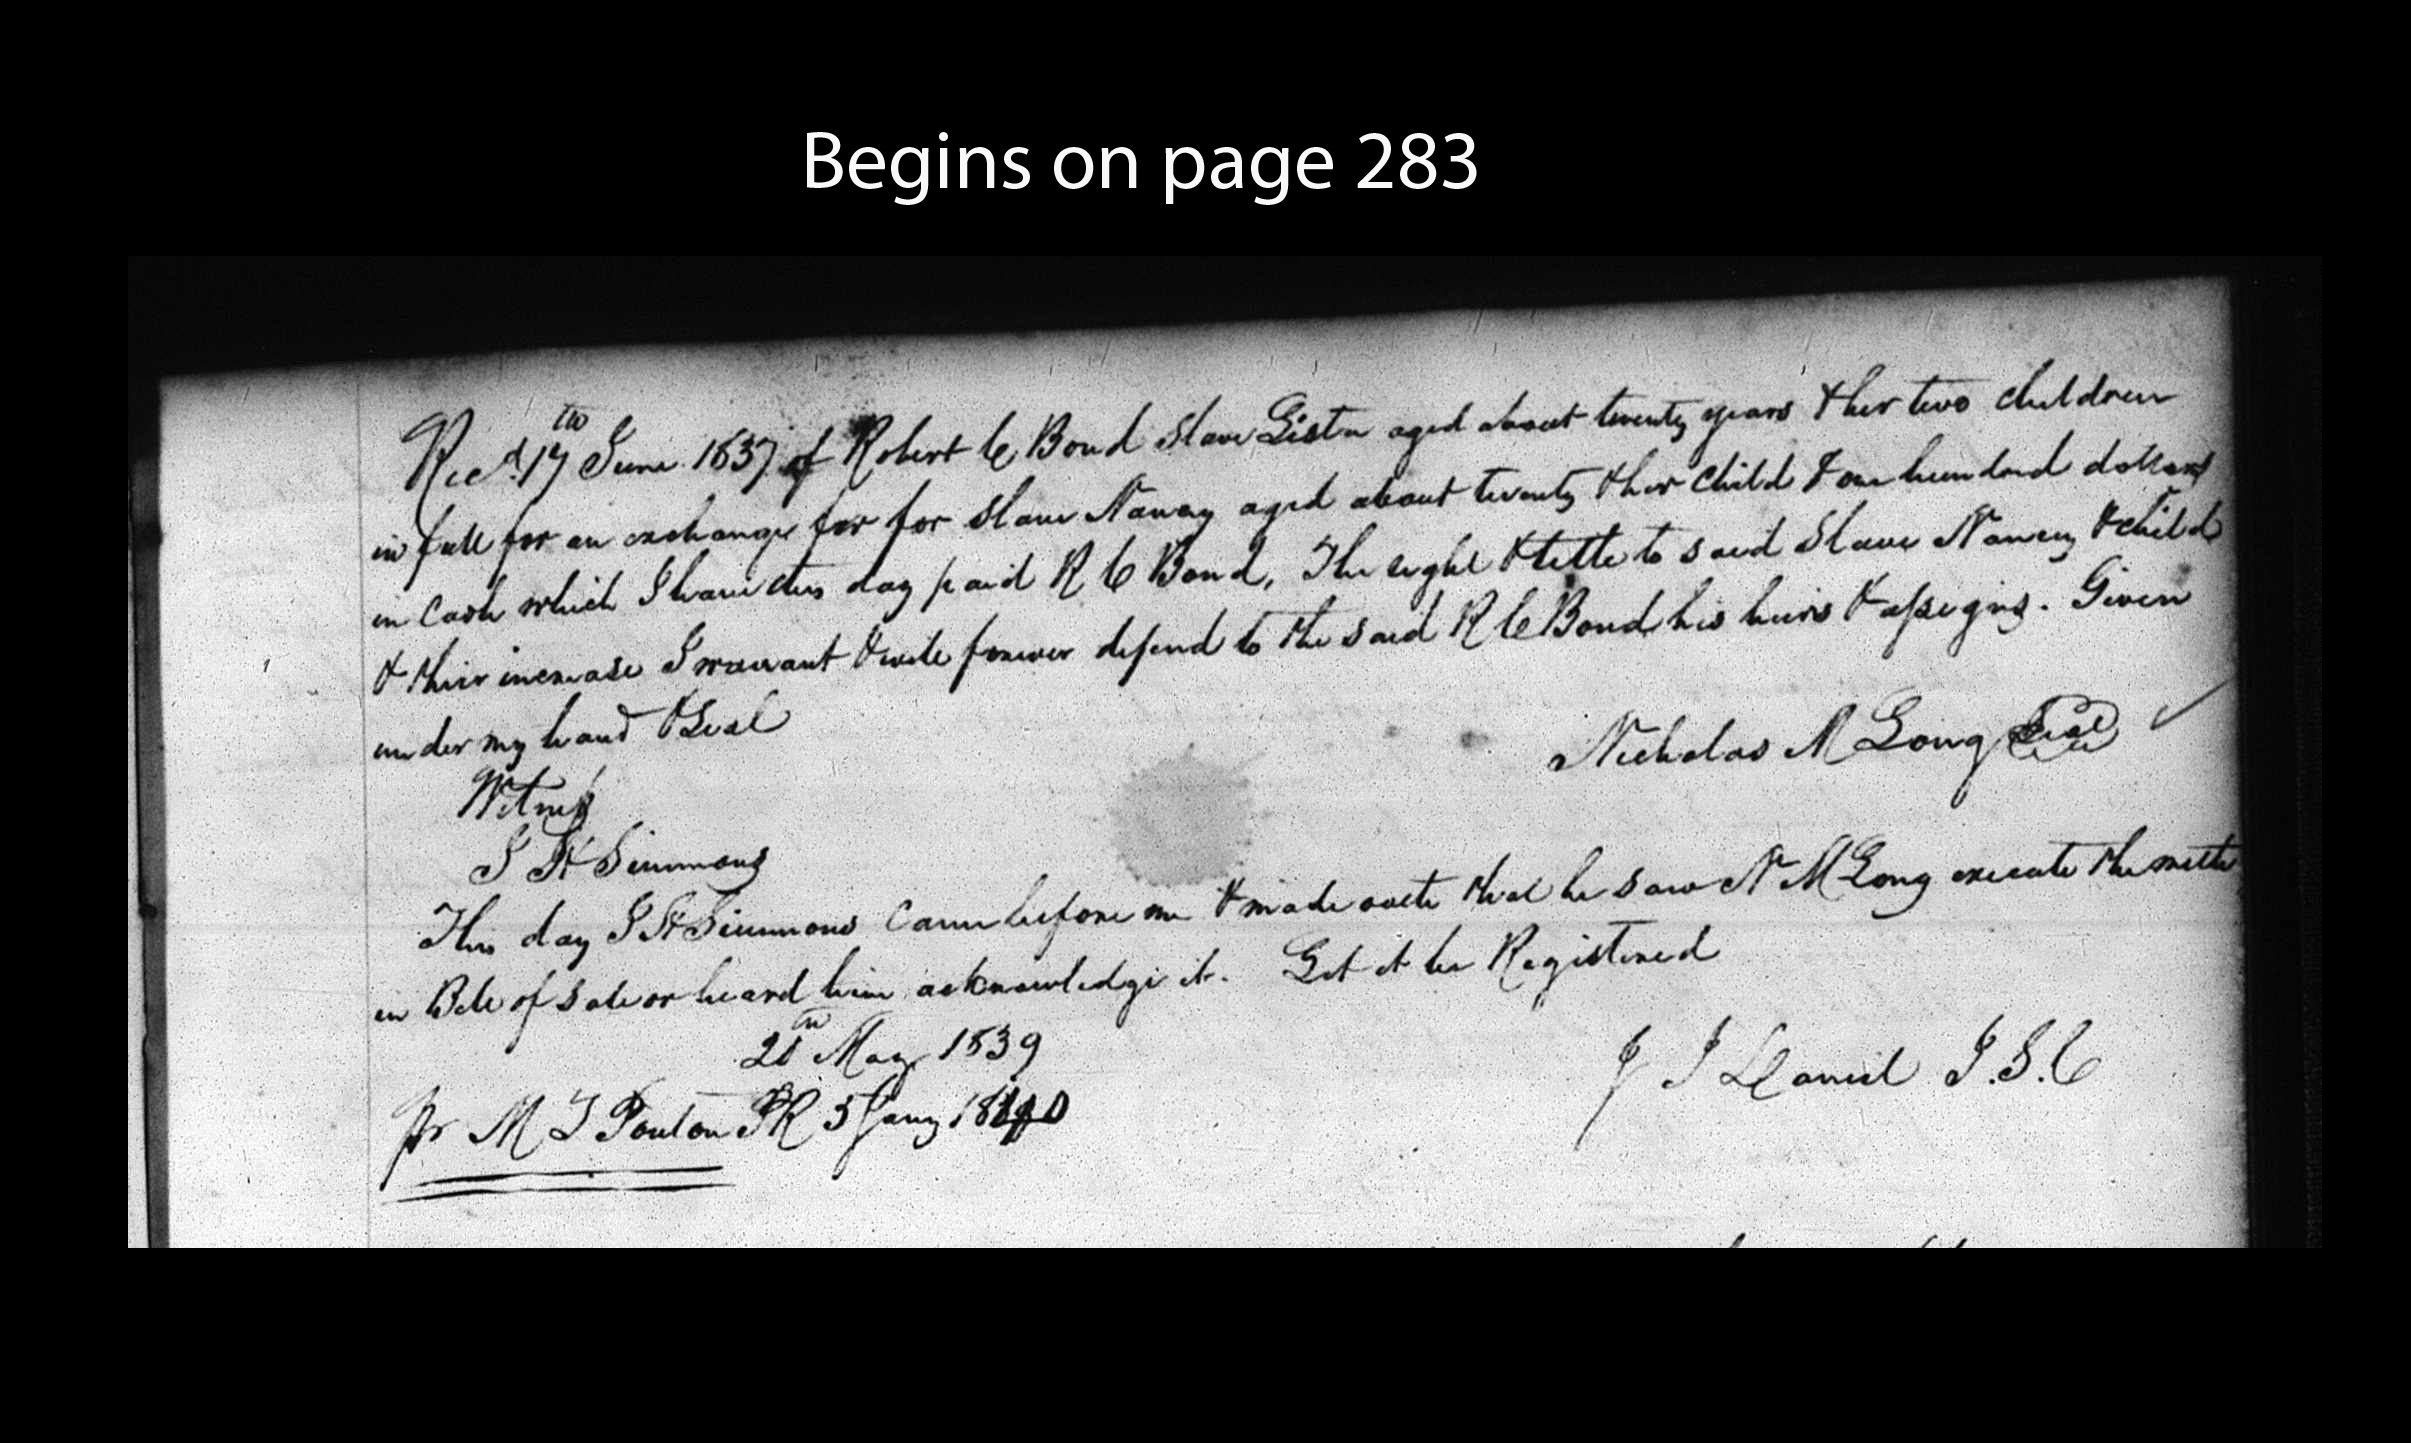 Begins on page 283
Recd. 17th June 1837 of Robert C Bond Slave aged about twenty years & her two children
in full for an exchange for for Slave Nancy aged about twenty & her Child & one hundred dollars
in Cash which I have this day paid R C Bond, The right & title to said Slave Nancy & child
& their increase I warrant & will forever defend to the said R C Bond his heirs & assigns. Given
under my hand & Seal
Nicholas M Long Seal
Witness
J H Simmons
This day J H Simmons came before me & made oath that he saw N M Long execute the with
in Bill of Sale or heard him acknowledge it. Let it be Registered
May 1839
J J Daniel J.S.C
pr M T Ponton PR 5 Jany 1840